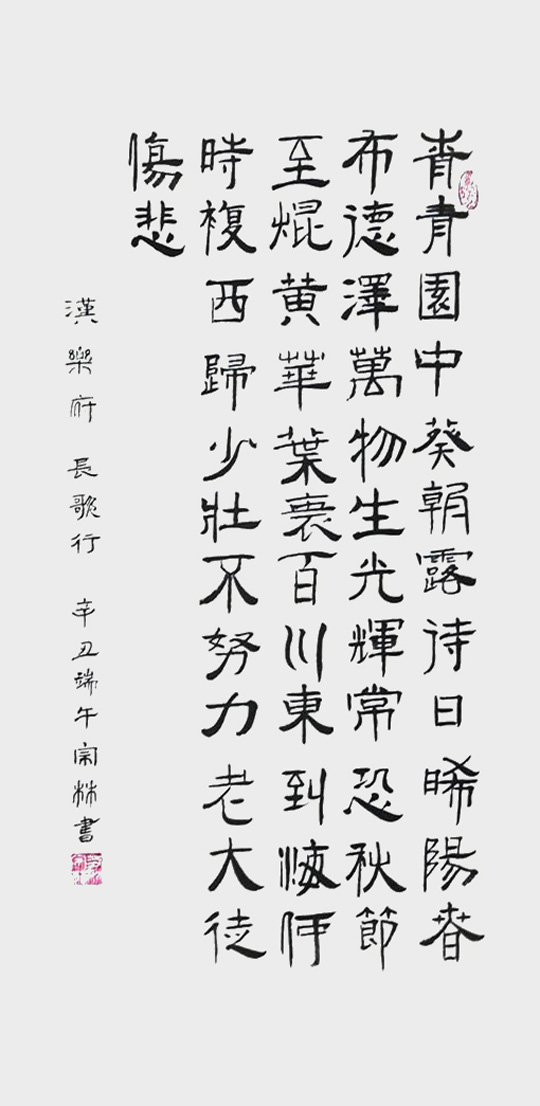 青青園中葵朝露待日晞陽春
布德澤萬物生光輝常恐秋節
至焜黄華葉衰百川東到海何
時複西歸少壯不努力老大徒
傷悲
漢樂府 長歌行 辛丑端午宗林書